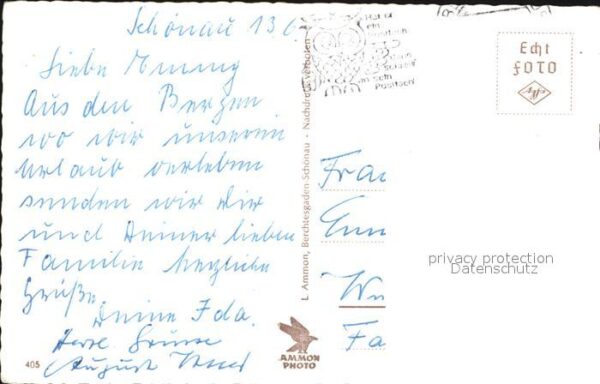 Schönau 13. 6.
Liebe Emmy
Aus den Bergen
wo wir unseren
Urlaub verleben
senden wir Dir
und Deiner lieben
Familie herzliche
Grüße.
Deine Ida.
Herzl. Grüsse
August
405
L. Ammon, Berchtesgaden-Schönau - Nachdruck verboten
AMMON
PHOTO
ein
sein
Postsch
Echt
FOTO
Frau
Fa
privacy protection
Datenschutz